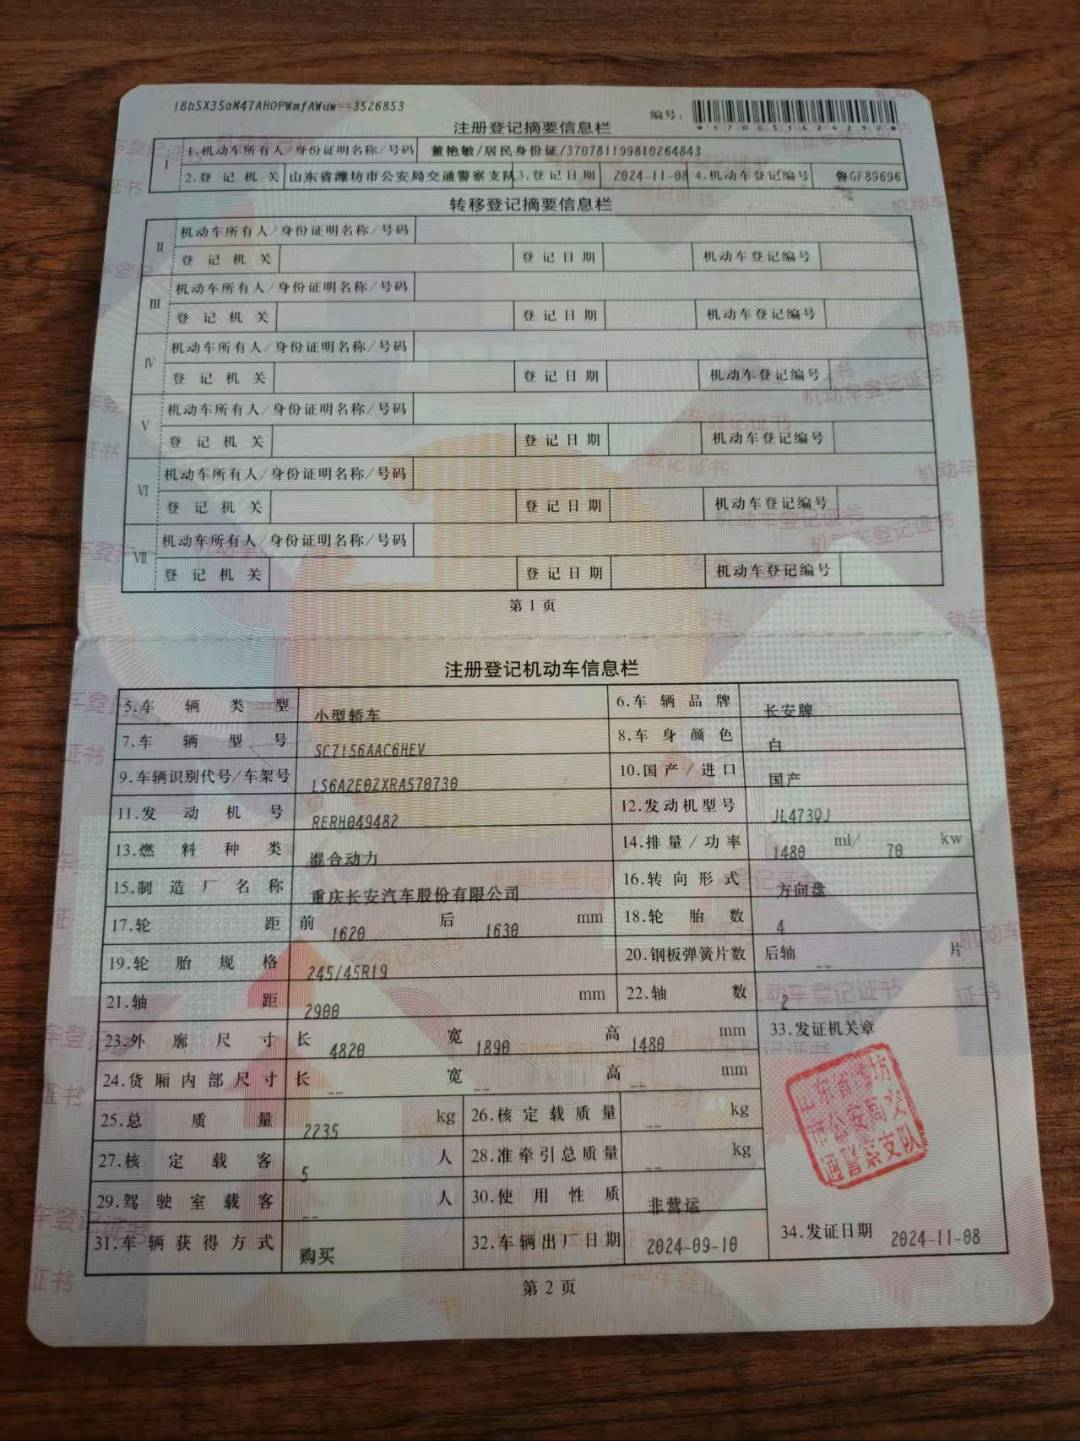 IBhSX35aM47AHOPWmfAWuw==3526853
编号:
注册登记摘要信息栏
I 1.机动车所有人/身份证明名称/号码 董艳敏/居民身份证/370781199810264843
2.登记机关 山东省潍坊市公安局交通警察支队 3.登记日期 2024-11-08 4.机动车登记编号 鲁GF89696
转移登记摘要信息栏
II 机动车所有人/身份证明名称/号码
登记机关 登记日期 机动车登记编号
III 机动车所有人/身份证明名称/号码
登记机关 登记日期 机动车登记编号
IV 机动车所有人/身份证明名称/号码
登记机关 登记日期 机动车登记编号
V 机动车所有人/身份证明名称/号码
登记机关 登记日期 机动车登记编号
VI 机动车所有人/身份证明名称/号码
登记机关 登记日期 机动车登记编号
VII 机动车所有人/身份证明名称/号码
登记机关 登记日期 机动车登记编号
第1页
注册登记机动车信息栏
5.车辆类型 小型轿车 6.车辆品牌 长安牌
7.车辆型号 SC7156AAC6HEV 8.车身颜色 白
9.车辆识别代号/车架号 LS6A2E0ZXRA570730 10.国产/进口 国产
11.发动机号 RERH049482 12.发动机型号 JL473QJ
13.燃料种类 混合动力 14.排量/功率 1480 ml/ 70 kw
15.制造厂名称 重庆长安汽车股份有限公司 16.转向形式 方向盘
17.轮距 前 1620 后 1630 mm 18.轮胎数 4
19.轮胎规格 245/45R19 20.钢板弹簧片数 后轴 -- 片
21.轴距 2900 mm 22.轴数 2
23.外廓尺寸 长 4820 宽 1890 高 1480 mm 33.发证机关章
24.货厢内部尺寸 长 -- 宽 -- 高 -- mm
25.总质量 2235 kg 26.核定载质量 -- kg
27.核定载客 5 人 28.准牵引总质量 -- kg
山东省潍坊
市公安局交
通警察支队
29.驾驶室载客 -- 人 30.使用性质 非营运
31.车辆获得方式 购买 32.车辆出厂日期 2024-09-10 34.发证日期 2024-11-08
第2页